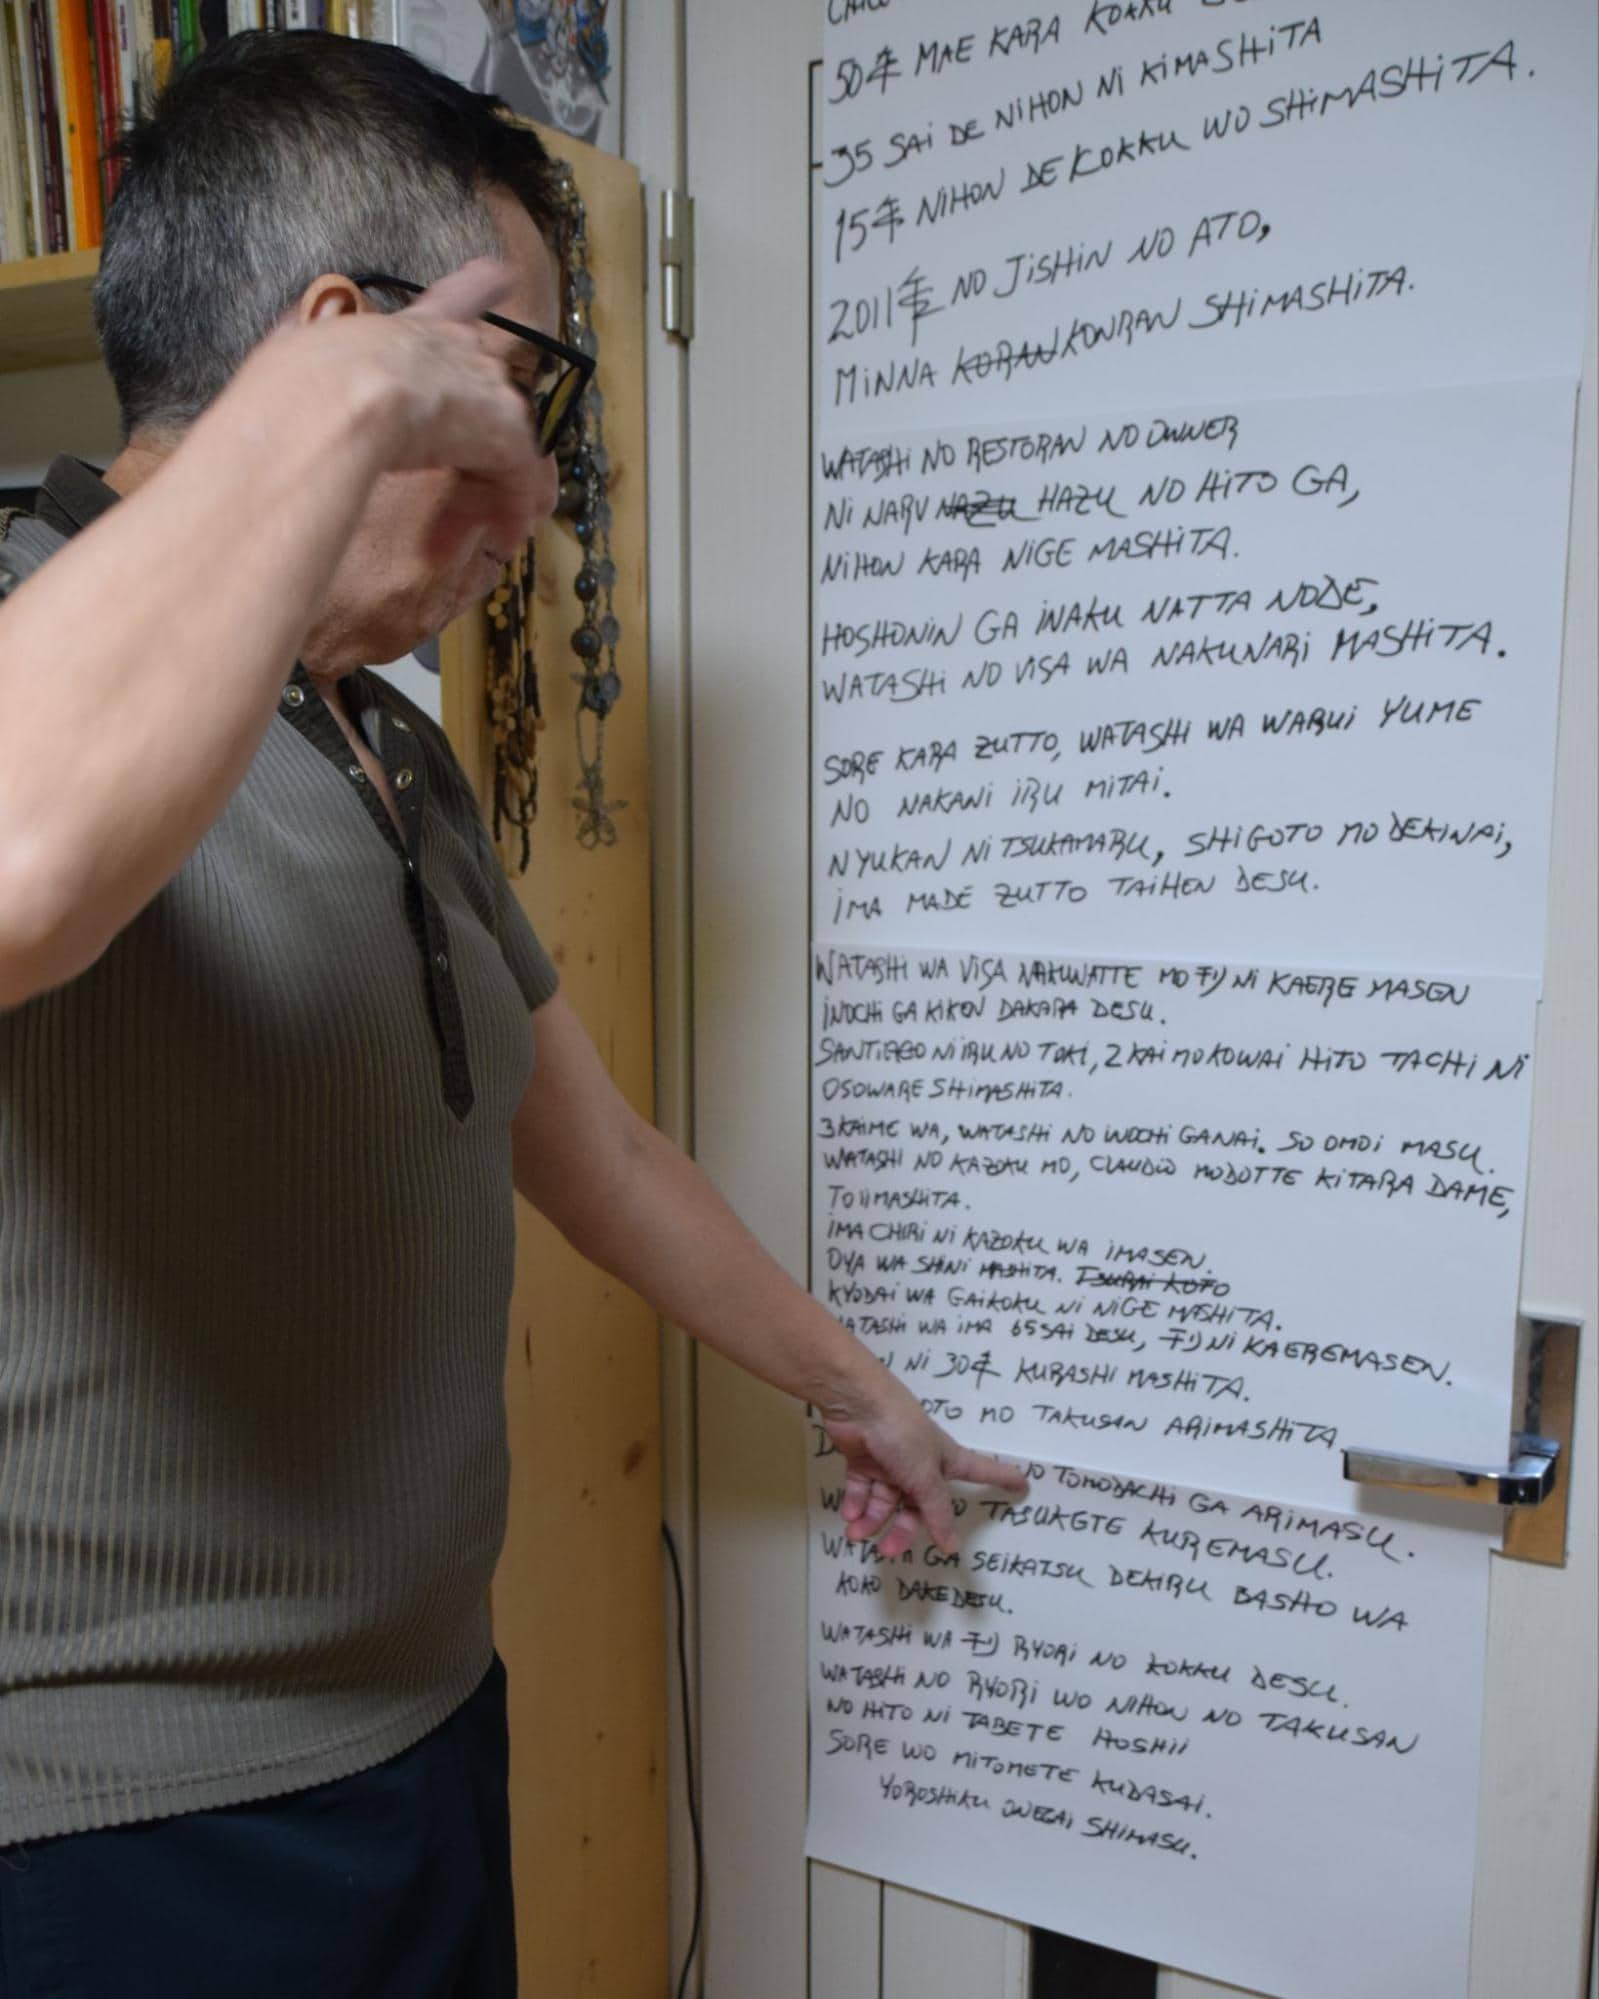 50年 MAE KARA KOKKU
35 SAI DE NIHON NI KIMASHITA
15年 NIHON DE KOKKU WO SHIMASHITA.
2011年 NO JISHIN NO ATO,
MINNA KORAN KONRAN SHIMASHITA.
WATASHI NO RESTORAN NO OWNER
NI NARU NAZU HAZU NO HITO GA,
NIHON KARA NIGE MASHITA.
HOSHONIN GA INAKU NATTA NODE,
WATASHI NO VISA WA NAKUNARI MASHITA.
SORE KARA ZUTTO, WATASHI WA WARUI YUME
NO NAKANI IRU MITAI.
NYUKAN NI TSUKAMARU, SHIGOTO MO DEKINAI,
IMA MADE ZUTTO TAIHEN DESU.
WATASHI WA VISA NAKUNATTE MO チリ NI KAERE MASEN
INOCHI GA KIKEN DAKARA DESU.
SANTIAGO NI IRU NO TOKI, 2 KAI MO KOWAI HITO TACHI NI
OSOWARE SHIMASHITA.
3 KAIME WA, WATASHI NO INOCHI GA NAI. SO OMOI MASU.
WATASHI NO KAZOKU MO, CLAUDIO MODOTTE KITARA DAME,
TO IIMASHITA.
IMA CHIRI NI KAZOKU WA IMASEN.
OYA WA SHINI MASHITA. TSURAI KOTO
KYODAI WA GAIKOKU NI NIGE MASHITA.
WATASHI WA IMA 65 SAI DESU, チリ NI KAEREMASEN.
NI 30年 KURASHI MASHITA.
OTO MO TAKUSAN ARIMASHITA.
NO TOMODACHI GA ARIMASU.
TASUKETE KUREMASU.
WATASHI GA SEIKATSU DEKIRU BASHO WA
KOKO DAKE DESU.
WATASHI WA チリ RYORI NO KOKKU DESU.
WATASHI NO RYORI WO NIHON NO TAKUSAN
NO HITO NI TABETE HOSHII
SORE WO MITOMETE KUDASAI.
YOROSHIKU ONEGAI SHIMASU.